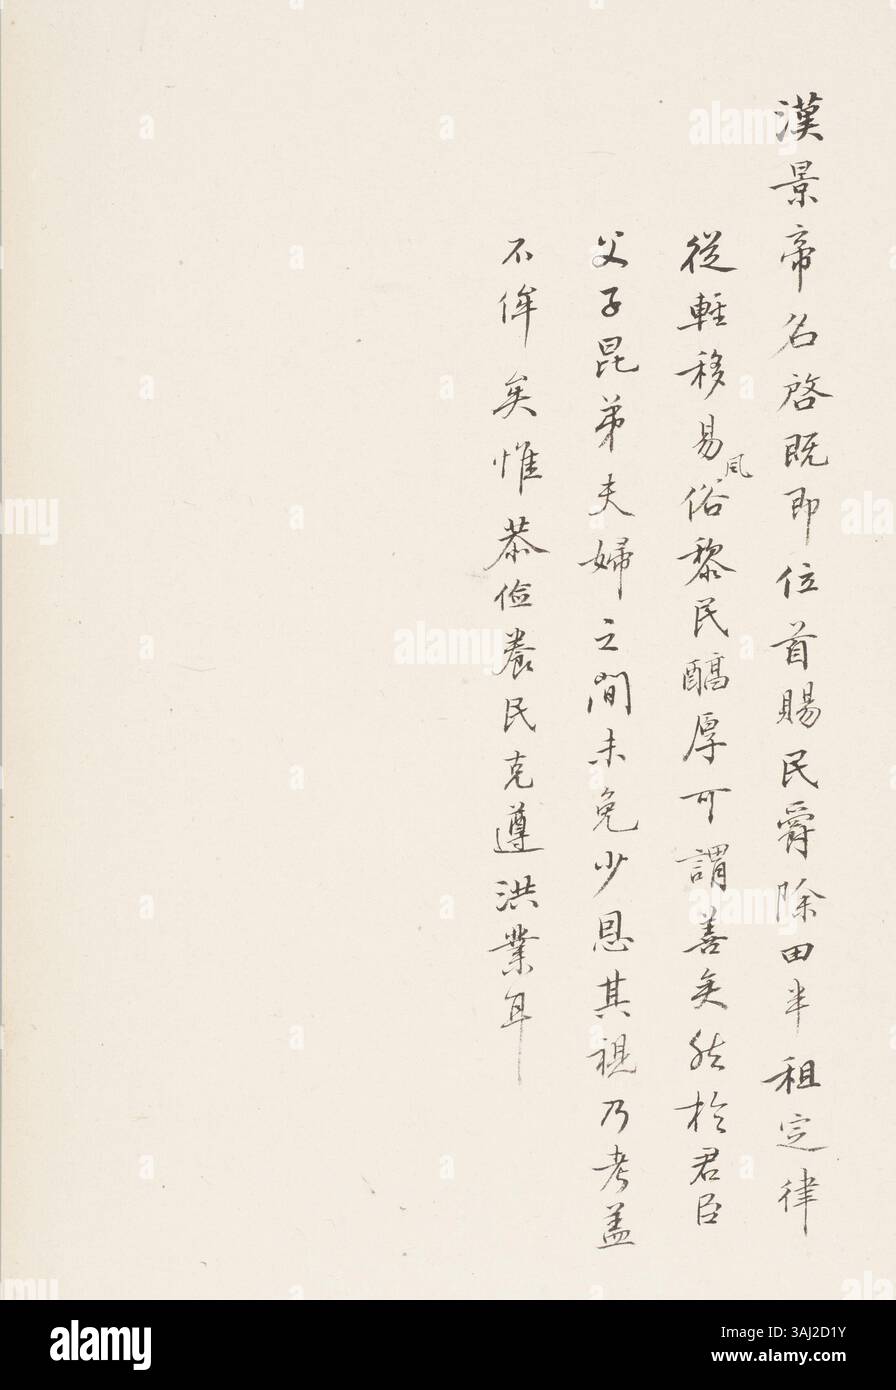 漢景帝名啓既即位首賜民爵除田半租定律
從輕移易風俗黎民醕厚可謂善矣然於君臣
父子昆弟夫婦之間未免少恩其視乃考蓋
不侔矣惟恭儉養民克遵洪業耳
alamy
Image ID: 3AJ2D1Y
www.alamy.com